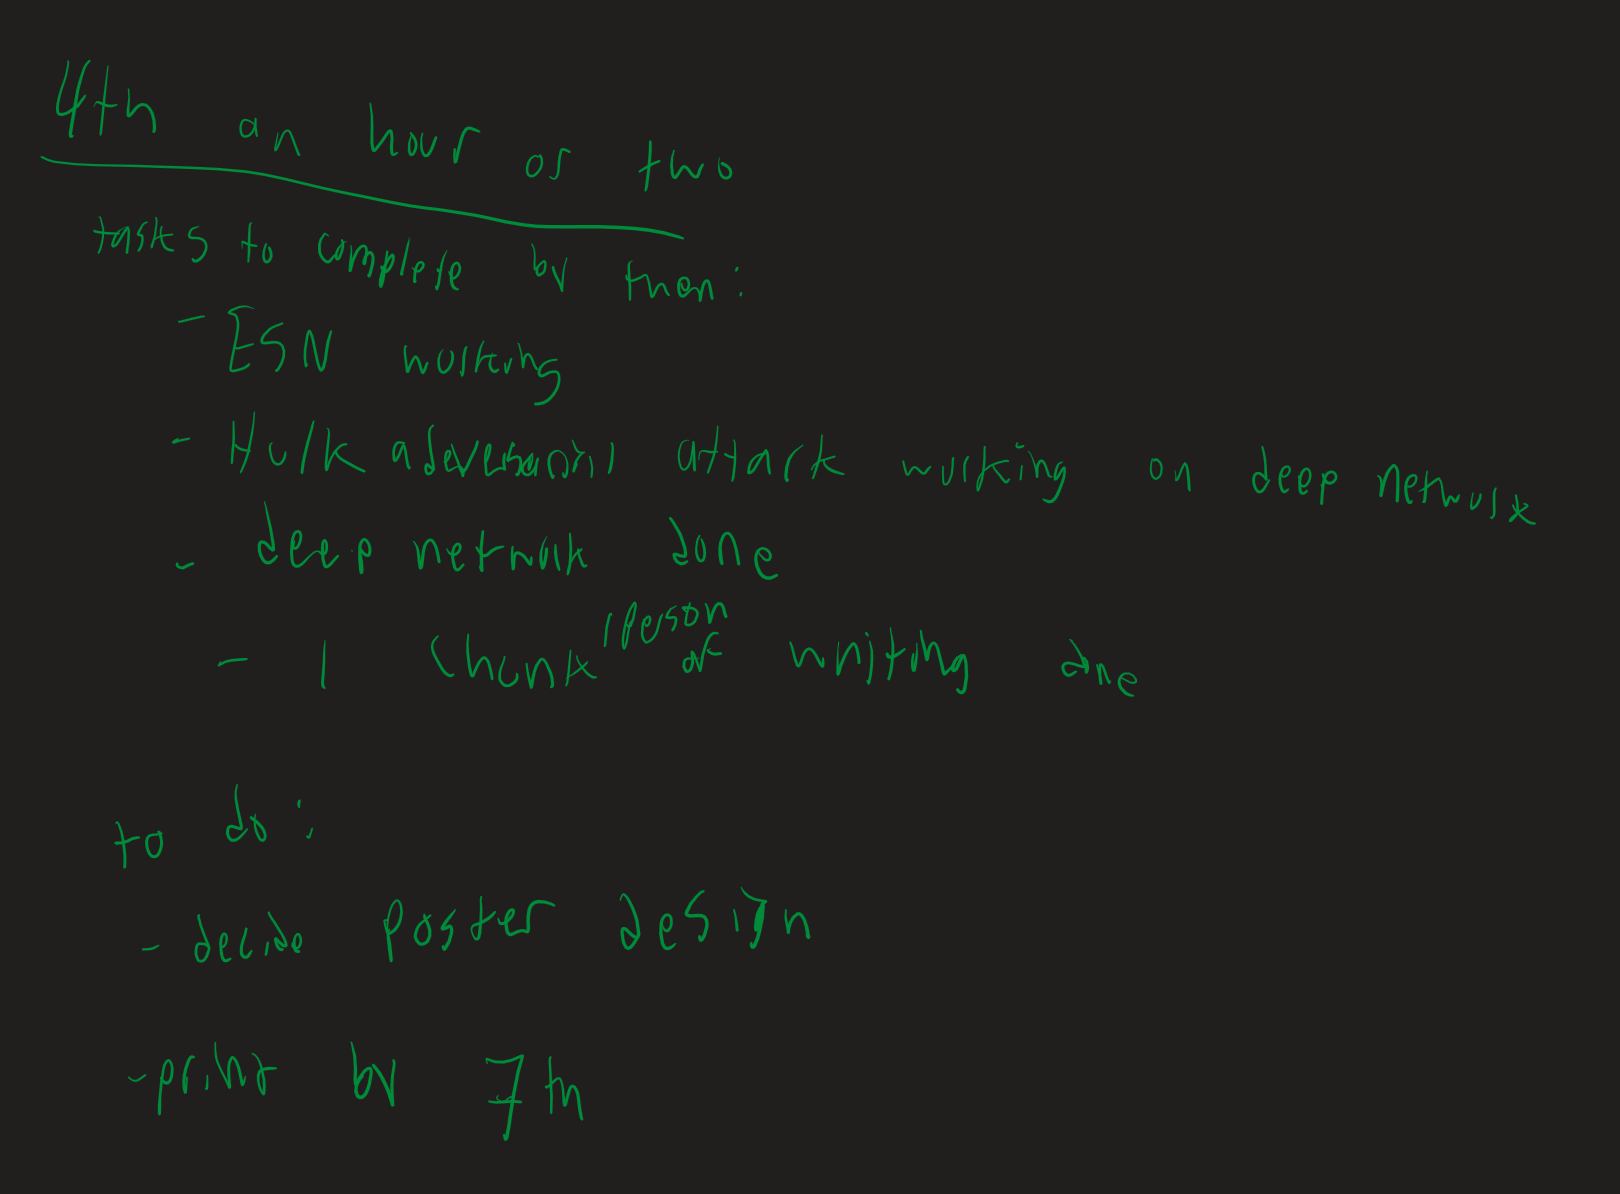 4th an hour or two
tasks to complete by then:
- ESN working
- Hulk adversarial attack working on deep network
- deep network done
- 1 chunk/person of writing done
to do:
- decide poster design
- print by 7th